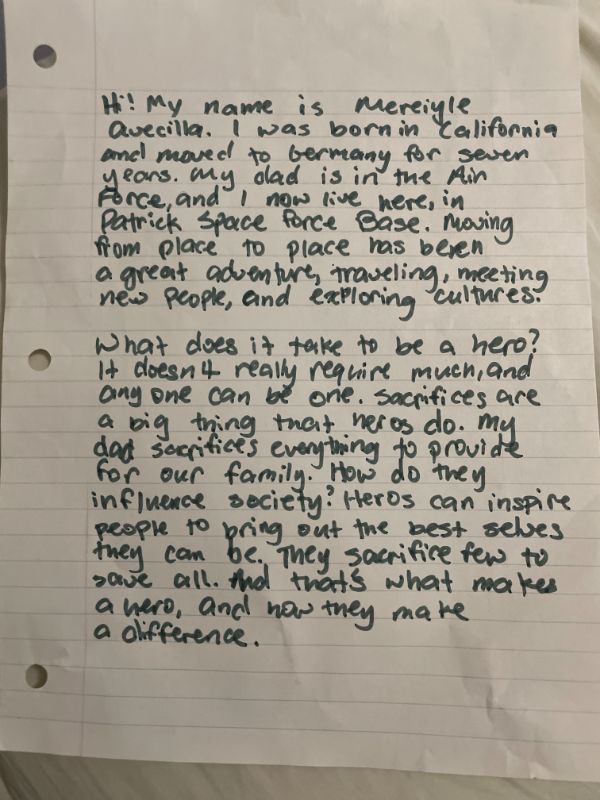 Hi! My name is Mereiyle
Avecilla. I was born in California
and moved to Germany for seven
years. My dad is in the Air
Force, and I now live here, in
Patrick Space Force Base. Moving
from place to place has been
a great adventure, traveling, meeting
new people, and exploring cultures.

What does it take to be a hero?
It doesn't really require much, and
any one can be one. Sacrifices are
a big thing that heros do. My
dad sacrifices everything to provide
for our family. How do they
influence society? Heros can inspire
people to bring out the best selves
they can be. They sacrifice few to
save all. And that's what makes
a hero, and how they make
a difference.